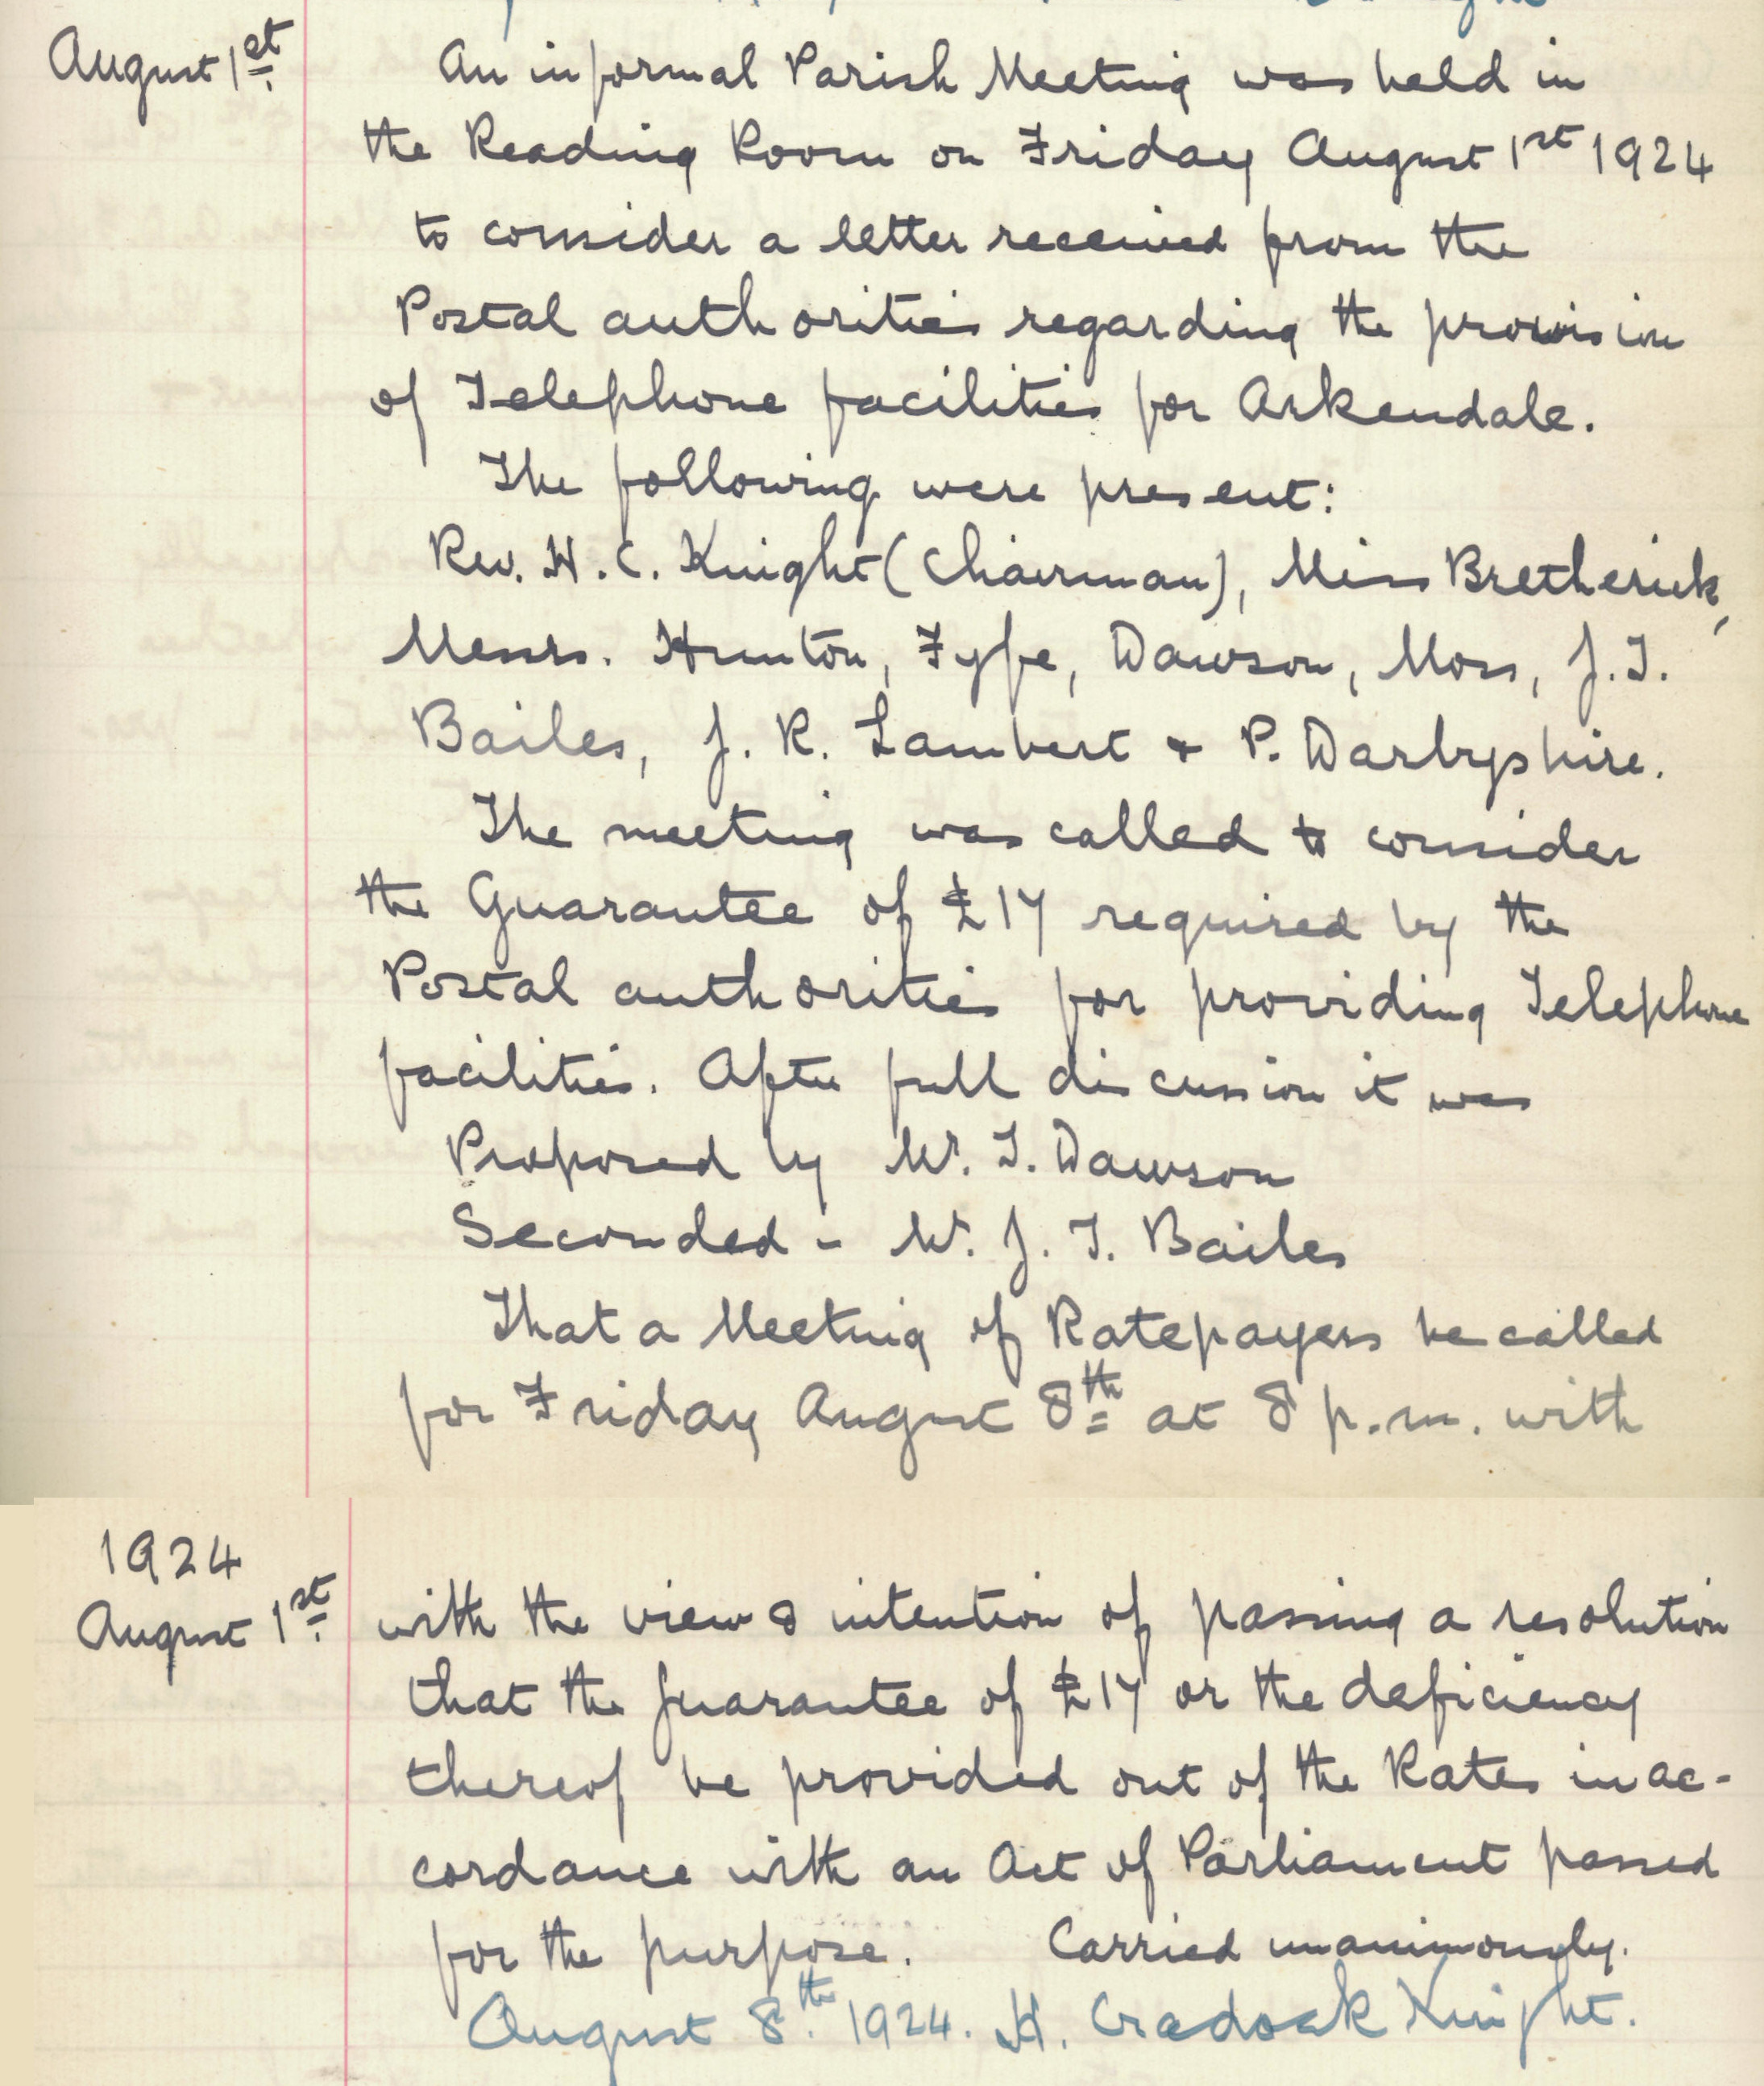 August 1st.
An informal Parish Meeting was held in
the Reading Room on Friday August 1st 1924
to consider a letter received from the
Postal authorities regarding the provision
of Telephone facilities for Arkendale.
The following were present:
Rev. H. C. Knight (Chairman), Miss Bretherick,
Messrs. Hunton, Fyfe, Dawson, Moss, J. T.
Bailes, J. R. Lambert + P. Darbyshire.
The meeting was called to consider
the Guarantee of £17 required by the
Postal authorities for providing Telephone
facilities. After full discussion it was
Proposed by Mr. T. Dawson
Seconded - Mr. J. T. Bailes
That a Meeting of Ratepayers be called
for Friday August 8th at 8 p.m. with
1924
August 1st.
with the view & intention of passing a resolution
that the guarantee of £17 or the deficiency
thereof be provided out of the Rates in ac-
cordance with an Act of Parliament passed
for the purpose. Carried unanimously.
August 8th. 1924. H. Cradock Knight.